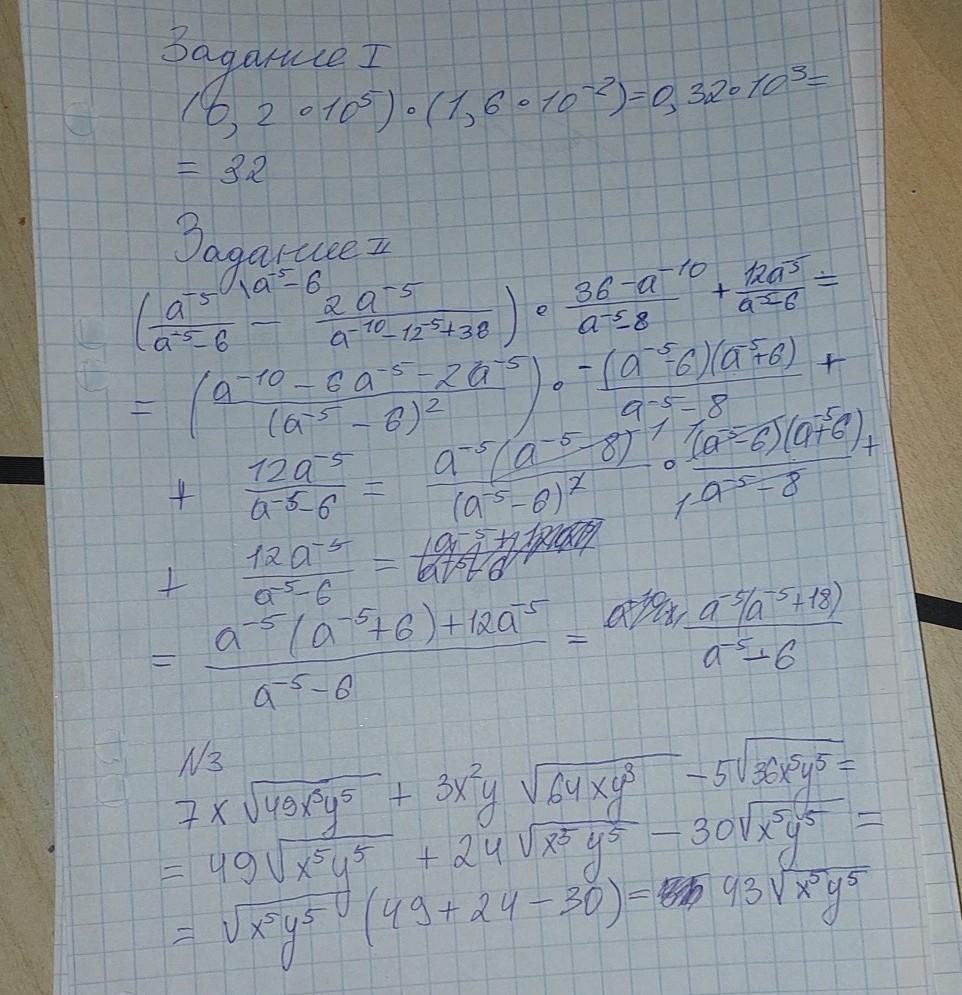 Задание I
(0,2∘10⁵)∘(1,6∘10⁻²)=0,32∘10³=
= 32
Задание II
(a⁻⁵/(a⁻⁵-6) \a⁻⁵-6 − 2a⁻⁵/(a⁻¹⁰-12⁻⁵+38))∘(36-a⁻¹⁰)/(a⁻⁵-8) + 12a⁻⁵/(a⁻⁵-6) =
= ((a⁻¹⁰-6a⁻⁵-2a⁻⁵)/(a⁻⁵-6)²)∘ -(a⁻⁵-6)(a⁻⁵+6)/(a⁻⁵-8) +
+ 12a⁻⁵/(a⁻⁵-6) = a⁻⁵(a⁻⁵-8)¹/(a⁻⁵-6)² ∘ ¹(a⁻⁵-6)(a⁻⁵+6)/₁a⁻⁵-8 +
+ 12a⁻⁵/(a⁻⁵-6) =
= (a⁻⁵(a⁻⁵+6)+12a⁻⁵)/(a⁻⁵-6) = a⁻⁵(a⁻⁵+18)/(a⁻⁵-6)
N3
7x√(49x³y⁵) + 3x²y√(64xy³) -5√(36x⁵y⁵)=
= 49√(x⁵y⁵) + 24√(x⁵y⁵) - 30√(x⁵y⁵) =
= √(x⁵y⁵) (49+24-30)= 43√(x⁵y⁵)